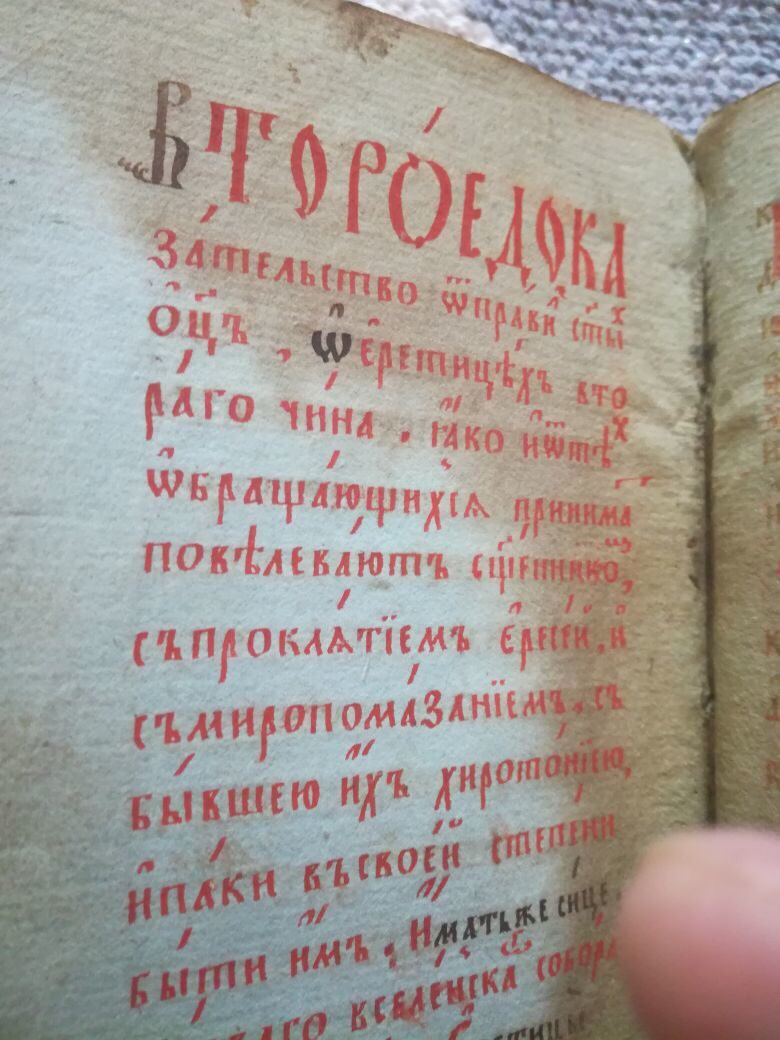 Второ́едока
за́тельство ѿпра́ви ст҃ы́хъ
о҆ц҃ъ . ѡ҆ е҆ретицѣхъ вто
ра́го чи́на . ꙗ҆́ко и҆ѿтѣ́х
ѡ҆браща́ющихсѧ принима
повѣлева́ютъ сщ҃е́ннико,
съпроклѧ́тїемъ е҆́ресей, и҆
съмиропома́занїемъ, съ
бы́вшею и҆́хъ хиротоні́ею,
и҆па́ки въсвое́й сте́пени
бы́ти и҆́мъ . И҆́мать же си́це .
вселе́нска собора